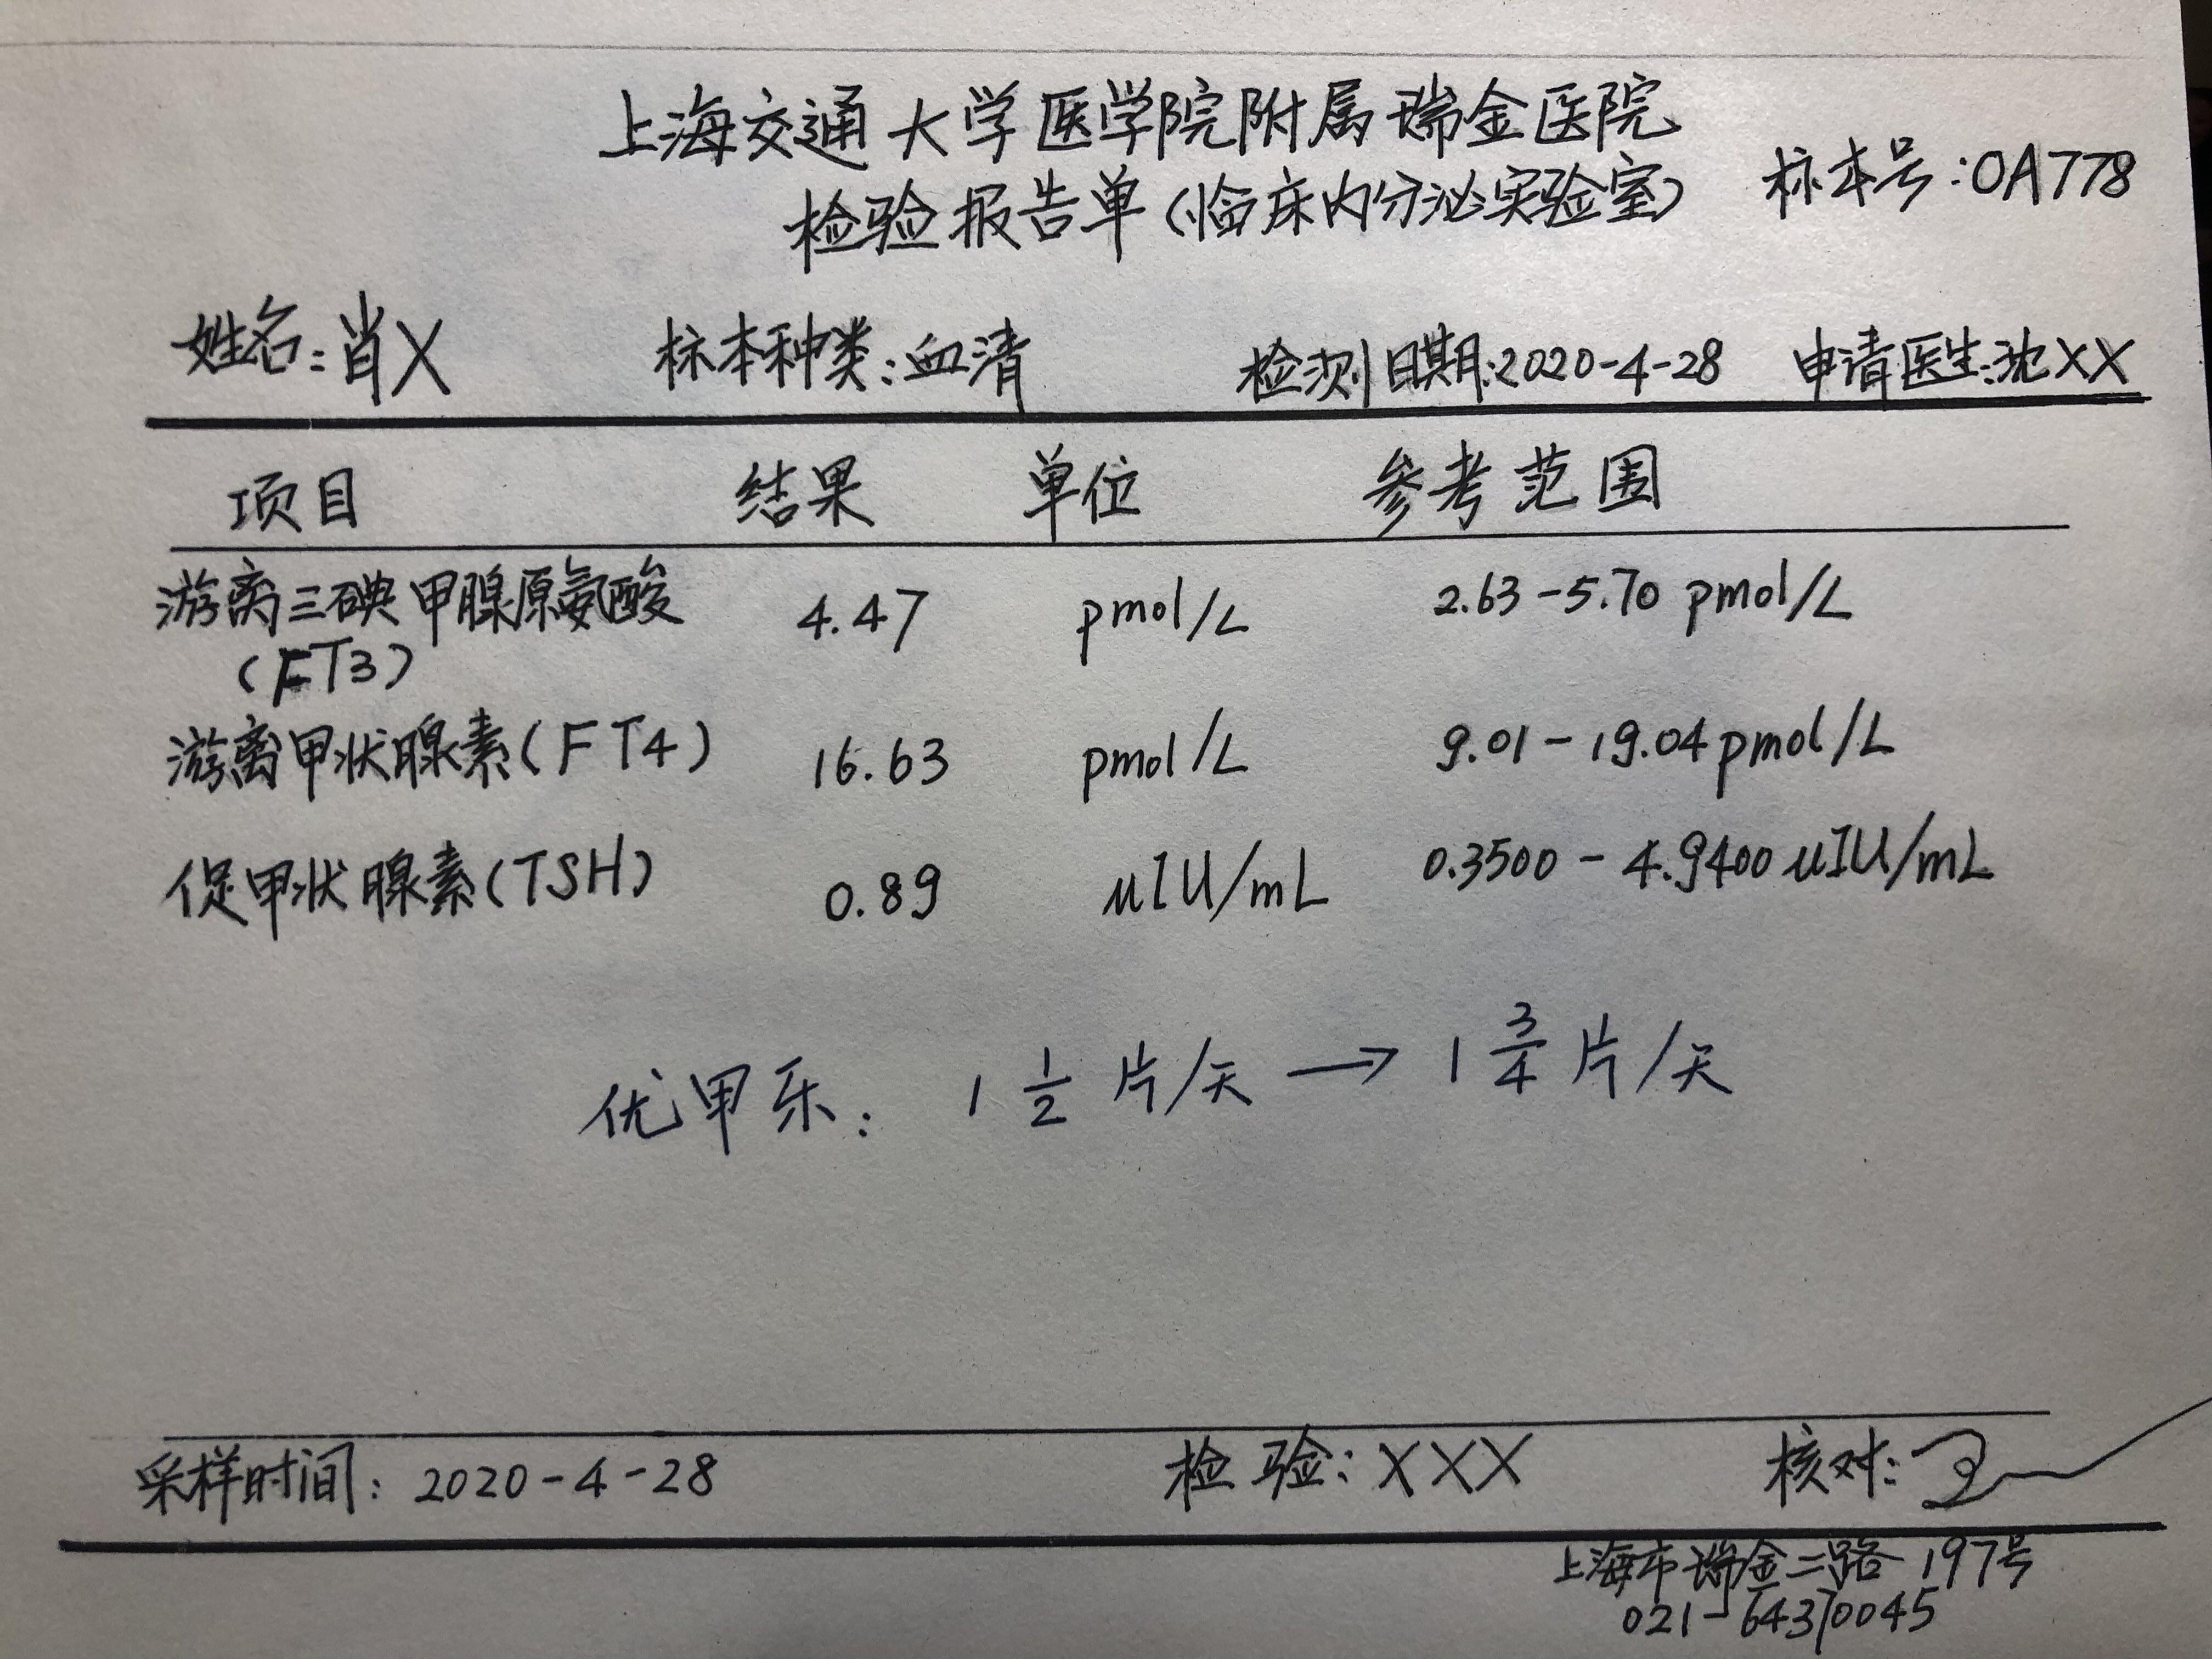 上海交通大学医学院附属瑞金医院
检验报告单(临床内分泌实验室) 标本号:0A778
姓名:肖X 标本种类:血清 检测日期:2020-4-28 申请医生:沈XX
项目 结果 单位 参考范围
游离三碘甲腺原氨酸 4.47 pmol/L 2.63-5.70 pmol/L
(FT3)
游离甲状腺素(FT4) 16.63 pmol/L 9.01-19.04 pmol/L
促甲状腺素(TSH) 0.89 uIU/mL 0.3500-4.9400 uIU/mL
优甲乐: 1 1/2 片/天 → 1 3/4 片/天
采样时间: 2020-4-28 检验: XXX 核对:
上海市瑞金二路 197号
021-64370045